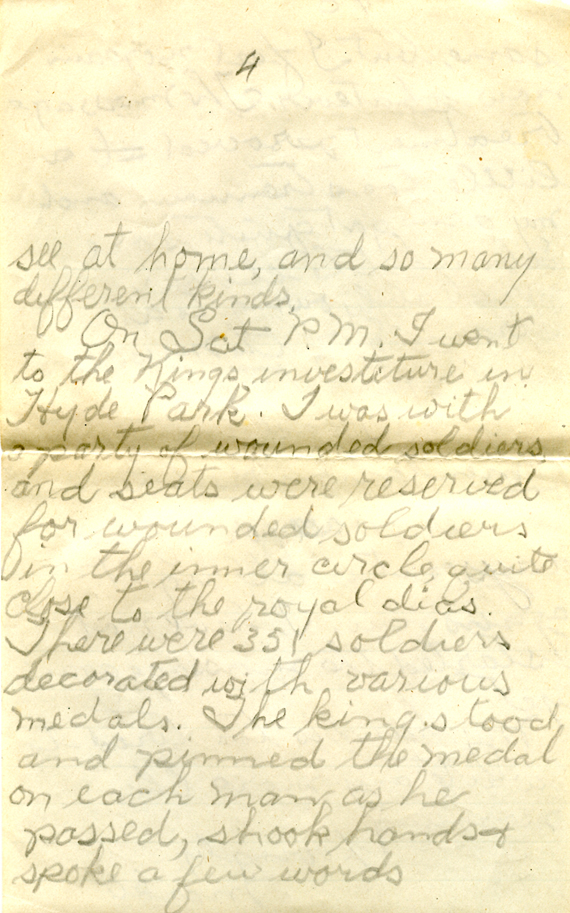 4
see at home, and so many
different kinds.
On Sat P.M. I went
to the Kings investiture in
Hyde Park. I was with
a party of wounded soldiers
and seats were reserved
for wounded soldiers
in the inner circle, quite
close to the royal dias.
There were 351 soldiers
decorated with various
medals. The king stood
and pinned the medal
on each man as he
passed, shook hands &
spoke a few words